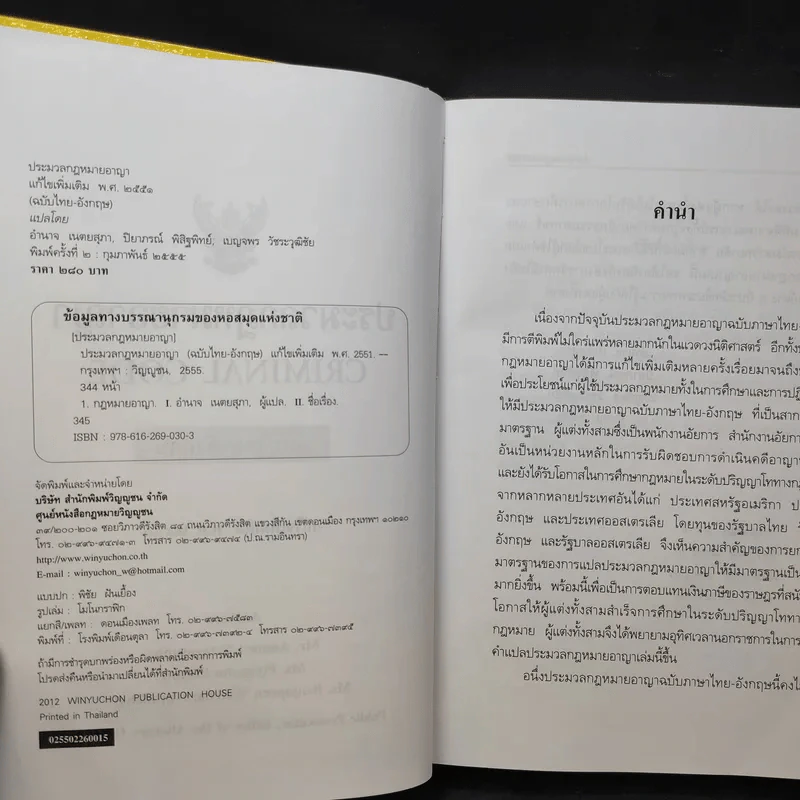 ประมวลกฎหมายอาญา
แก้ไขเพิ่มเติม พ.ศ. ๒๕๕๑
(ฉบับไทย-อังกฤษ)
แปลโดย
อำนาจ เนตยสุภา, ปิยาภรณ์ พิสิฐพิทย์, เบญจพร วัชระวุฒิชัย
พิมพ์ครั้งที่ ๒ : กุมภาพันธ์ ๒๕๕๕
ราคา ๒๘๐ บาท
ข้อมูลทางบรรณานุกรมของหอสมุดแห่งชาติ
[ประมวลกฎหมายอาญา]
ประมวลกฎหมายอาญา (ฉบับไทย-อังกฤษ) แก้ไขเพิ่มเติม พ.ศ. 2551. —
กรุงเทพฯ : วิญญูชน, 2555.
344 หน้า
1. กฎหมายอาญา. I. อำนาจ เนตยสุภา, ผู้แปล. II. ชื่อเรื่อง.
345
ISBN : 978-616-269-030-3
จัดพิมพ์และจำหน่ายโดย
บริษัท สำนักพิมพ์วิญญูชน จำกัด
ศูนย์หนังสือกฎหมายวิญญูชน
๓๙/๒๐๐-๒๐๑ ซอยวิภาวดีรังสิต ๘๔ ถนนวิภาวดีรังสิต แขวงสีกัน เขตดอนเมือง กรุงเทพฯ ๑๐๒๑๐
โทร. ๐๒-๙๙๖-๙๔๗๑-๓ โทรสาร ๐๒-๙๙๖-๙๔๗๔ (ป.ณ.รามอินทรา)
http://www.winyuchon.co.th
E-mail : winyuchon_w@hotmail.com
แบบปก : พิชัย ฝันเยื้อง
รูปเล่ม : โมโนกราฟิก
แยกสี/เพลท : ดอนเมืองเพลท โทร. ๐๒-๙๙๖-๗๕๘๓
พิมพ์ที่ : โรงพิมพ์เดือนตุลา โทร. ๐๒-๙๙๖-๗๓๙๒-๔ โทรสาร ๐๒-๙๙๖-๗๓๙๕
ถ้ามีการชำรุดบกพร่องหรือผิดพลาดเนื่องจากการพิมพ์
โปรดส่งคืนหรือนำมาเปลี่ยนได้ที่สำนักพิมพ์
2012 WINYUCHON PUBLICATION HOUSE
Printed in Thailand
025502260015
คำนำ
เนื่องจากปัจจุบันประมวลกฎหมายอาญาฉบับภาษาไทย-
มีการตีพิมพ์ไม่ใคร่แพร่หลายมากนักในแวดวงนิติศาสตร์ อีกทั้ง
กฎหมายอาญาได้มีการแก้ไขเพิ่มเติมหลายครั้งเรื่อยมาจนถึง
เพื่อประโยชน์แก่ผู้ใช้ประมวลกฎหมายทั้งในการศึกษาและการปฏิ
ให้มีประมวลกฎหมายอาญาฉบับภาษาไทย-อังกฤษ ที่เป็นสาก
มาตรฐาน ผู้แต่งทั้งสามซึ่งเป็นพนักงานอัยการ สำนักงานอัยกา
อันเป็นหน่วยงานหลักในการรับผิดชอบการดำเนินคดีอาญา
และยังได้รับโอกาสในการศึกษากฎหมายในระดับปริญญาโททางก
จากหลากหลายประเทศอันได้แก่ ประเทศสหรัฐอเมริกา ป
อังกฤษ และประเทศออสเตรเลีย โดยทุนของรัฐบาลไทย
อังกฤษ และรัฐบาลออสเตรเลีย จึงเห็นความสำคัญของการยก
มาตรฐานของการแปลประมวลกฎหมายอาญาให้มีมาตรฐานเป็น
มากยิ่งขึ้น พร้อมนี้เพื่อเป็นการตอบแทนเงินภาษีของราษฎรที่สนั
โอกาสให้ผู้แต่งทั้งสามสำเร็จการศึกษาในระดับปริญญาโททา
กฎหมาย ผู้แต่งทั้งสามจึงได้พยายามอุทิศเวลานอกราชการในการ
คำแปลประมวลกฎหมายอาญาเล่มนี้ขึ้น
อนึ่งประมวลกฎหมายอาญาฉบับภาษาไทย-อังกฤษนี้คงไ